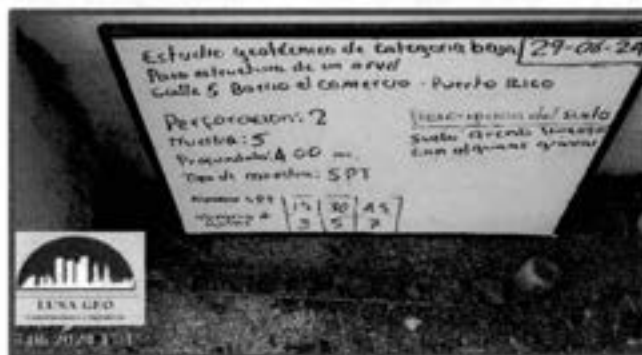 Estudio geotécnico de categoria baja
29-06-24
Para estructura de un nivel
Calle 5 Barrio el comercio - Puerto Rico
Perforación: 2
Muestra: 5
Profundidad: 4.00 m.
Tipo de muestra: SPT
Descripción del suelo
Suelo arena
con algunas gravas
Número SPT 15 30 45
Número de 3 5 7
LUNA GEO